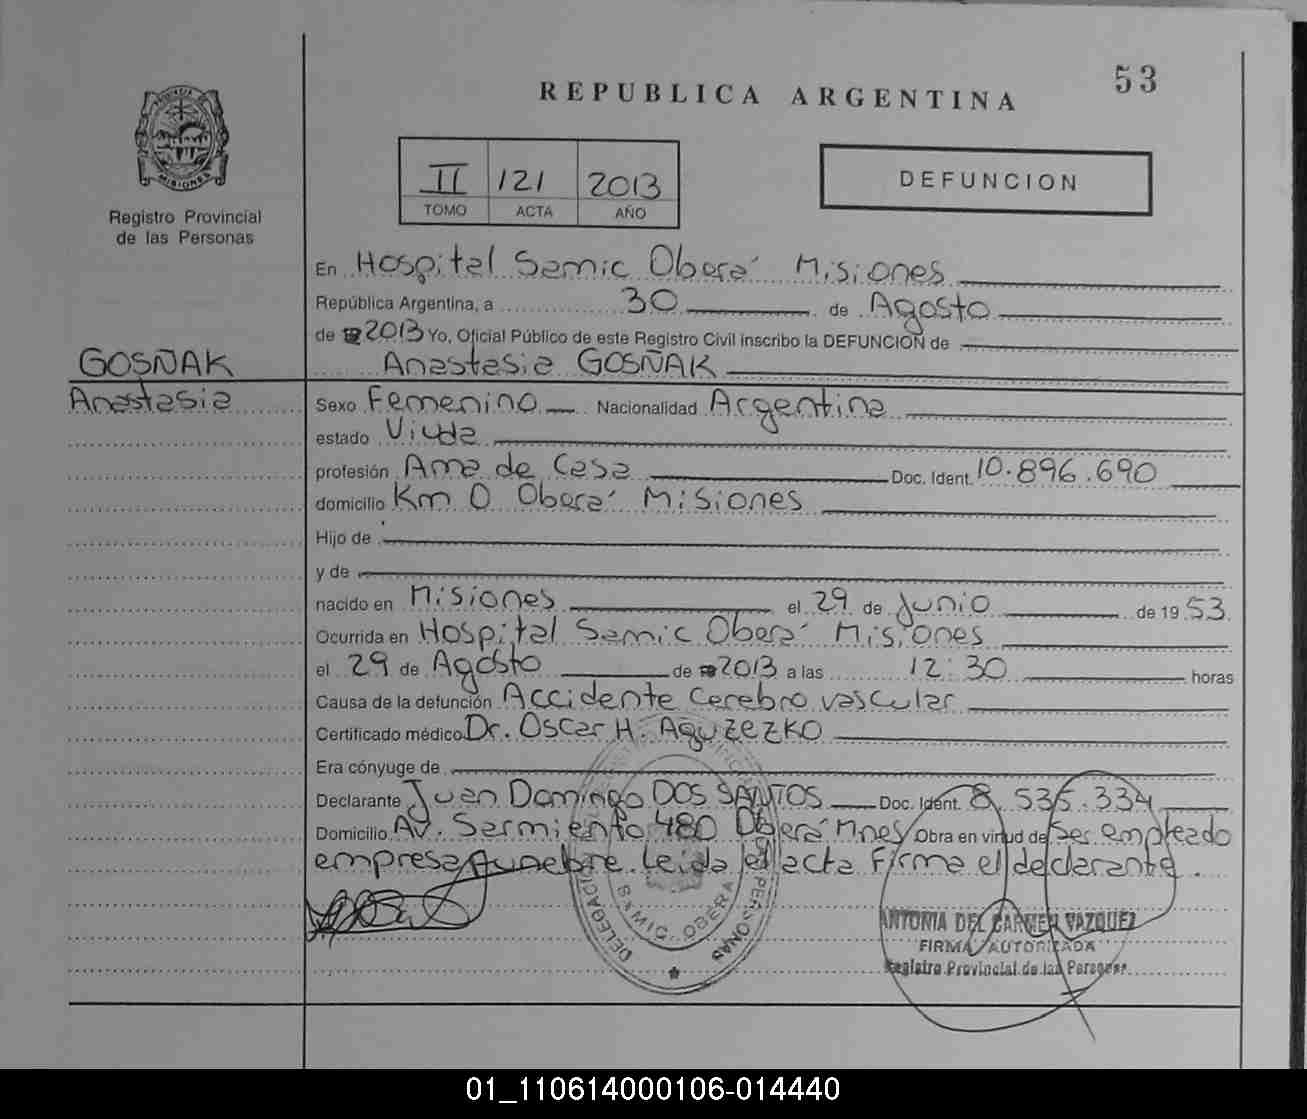 53
REPUBLICA ARGENTINA
PROVINCIA DE
MISIONES
Registro Provincial
de las Personas
II 121 2013
TOMO ACTA AÑO
DEFUNCION
En Hospital Samic Oberá Misiones
República Argentina, a 30 de Agosto
de 2013 Yo, Oficial Público de este Registro Civil inscribo la DEFUNCION de
GOSÑAK
Anastasia GOSÑAK
Anastasia
Sexo Femenino Nacionalidad Argentina
estado Viuda
profesión Ama de Casa Doc. Ident. 10.896.690
domicilio Km 0 Oberá Misiones
Hijo de
y de
nacido en Misiones el 29 de Junio de 19 53
Ocurrida en Hospital Samic Oberá Misiones
el 29 de Agosto de 2013 a las 12:30 horas
Causa de la defunción Accidente Cerebro vascular
Certificado médico Dr. Oscar H.
Era cónyuge de
Declarante Juan Domingo DOS SANTOS Doc. Ident. 8.535.334
Domicilio Av. Sarmiento 480 Oberá Mnes Obra en virtud de Ser empleado
empresa funebre. Leida el acta Firma el declarante.
DELEGACION
SAMIC - OBERA
PERSONAS
ANTONIA DEL CARMEN VAZQUEZ
FIRMA AUTORIZADA
Registro Provincial de las Personas
01_110614000106-014440